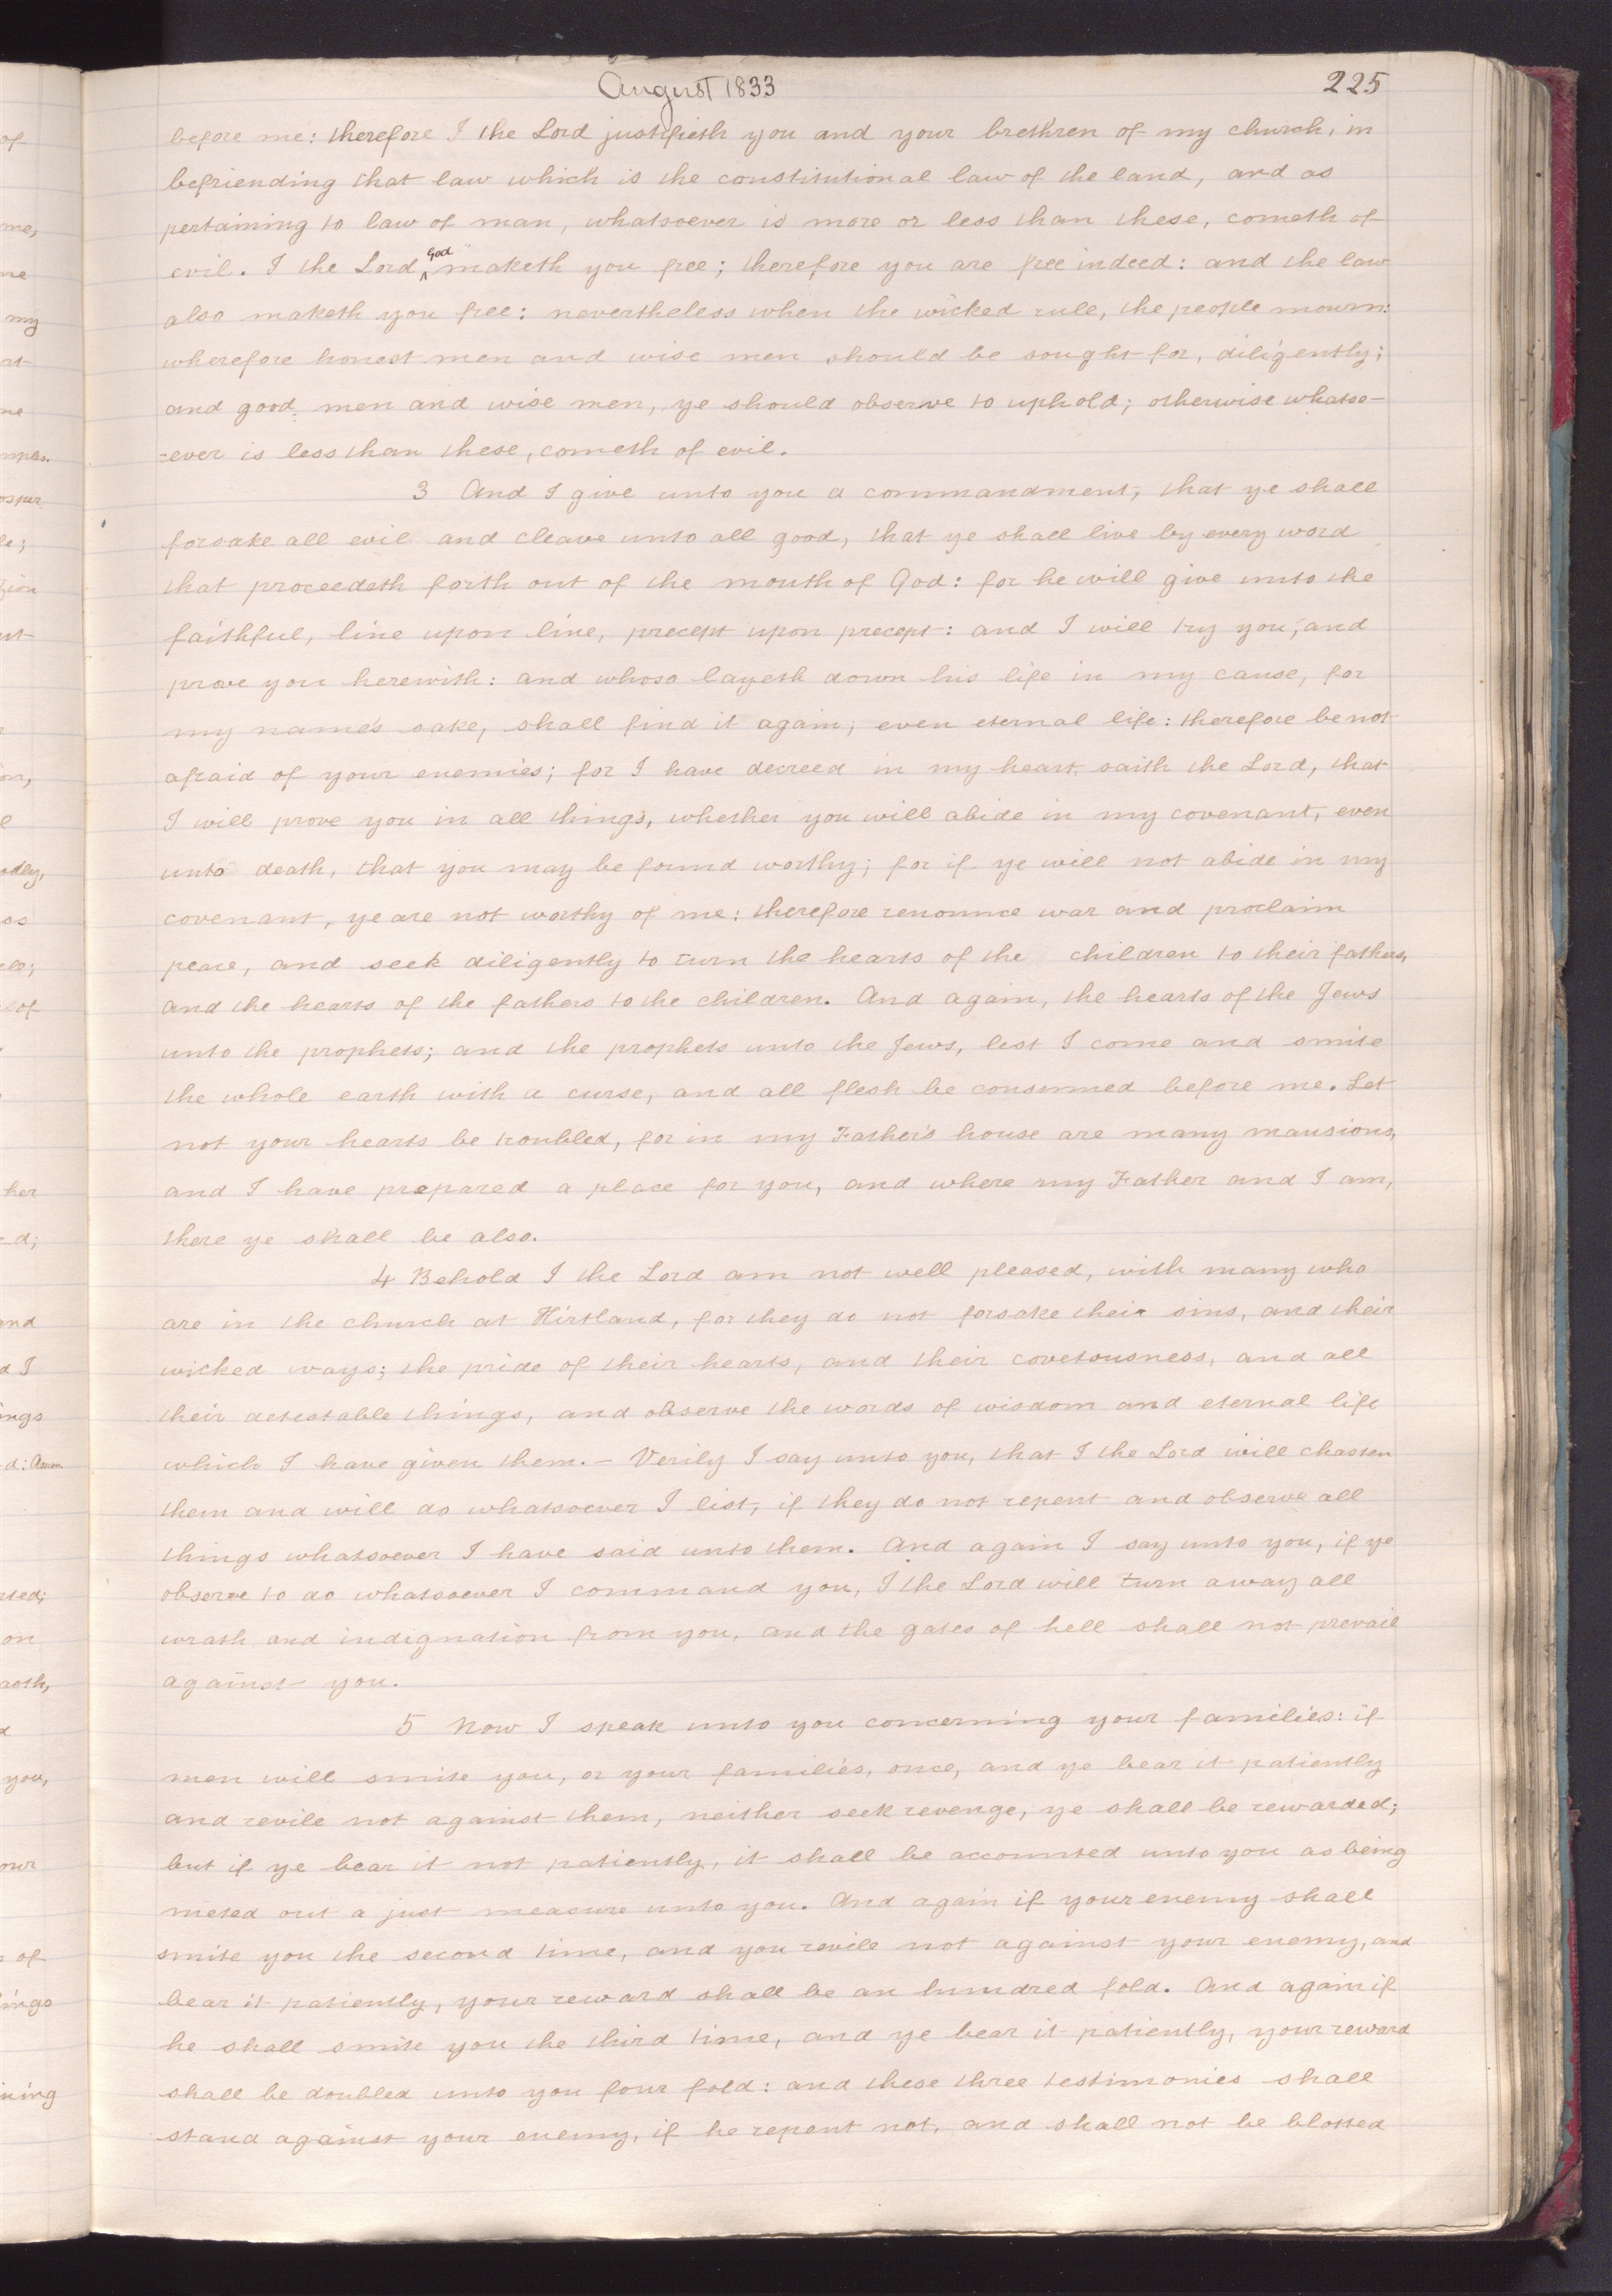 August 1833
225
before me: therefore I the Lord justifieth you and your brethren of my church, in
befriending that law which is the constitutional law of the land, and as
pertaining to law of man, whatsoever is more or less than these, cometh of
evil. I the Lord God maketh you free; therefore you are free indeed: and the law
also maketh you free: nevertheless when the wicked rule, the people mourn:
wherefore honest men and wise men should be sought for, diligently;
and good men and wise men, ye should observe to uphold; otherwise whatso-
-ever is less than these, cometh of evil.
3 And I give unto you a commandment, that ye shall
forsake all evil and cleave unto all good, that ye shall live by every word
that proceedeth forth out of the mouth of God: for he will give unto the
faithful, line upon line, precept upon precept: and I will try you, and
prove you herewith: and whoso layeth down his life in my cause, for
my name's sake, shall find it again; even eternal life: therefore be not
afraid of your enemies; for I have decreed in my heart, saith the Lord, that
I will prove you in all things, whether you will abide in my covenant, even
unto death, that you may be found worthy; for if ye will not abide in my
covenant, ye are not worthy of me: therefore renounce war and proclaim
peace, and seek diligently to turn the hearts of the children to their fathers,
and the hearts of the fathers to the children. And again, the hearts of the Jews
unto the prophets; and the prophets unto the Jews, lest I come and smite
the whole earth with a curse, and all flesh be consumed before me. Let
not your hearts be troubled, for in my Father's house are many mansions,
and I have prepared a place for you, and where my Father and I am,
there ye shall be also.
4 Behold I the Lord am not well pleased, with many who
are in the church at Kirtland, for they do not forsake their sins, and their
wicked ways; the pride of their hearts, and their covetousness, and all
their detestable things, and observe the words of wisdom and eternal life
which I have given them. - Verily I say unto you, that I the Lord will chasten
them and will do whatsoever I list, if they do not repent and observe all
things whatsoever I have said unto them. And again I say unto you, if ye
observe to do whatsoever I command you, I the Lord will turn away all
wrath and indignation from you, and the gates of hell shall not prevail
against you.
5 Now I speak unto you concerning your families: if
men will smite you, or your families, once, and ye bear it patiently
and revile not against them, neither seek revenge, ye shall be rewarded;
but if ye bear it not patiently, it shall be accounted unto you as being
meted out a just measure unto you. And again if your enemy shall
smite you the second time, and you revile not against your enemy, and
bear it patiently, your reward shall be an hundred fold. And again if
he shall smite you the third time, and ye bear it patiently, your reward
shall be doubled unto you four fold: and these three testimonies shall
stand against your enemy, if he repent not, and shall not be blotted